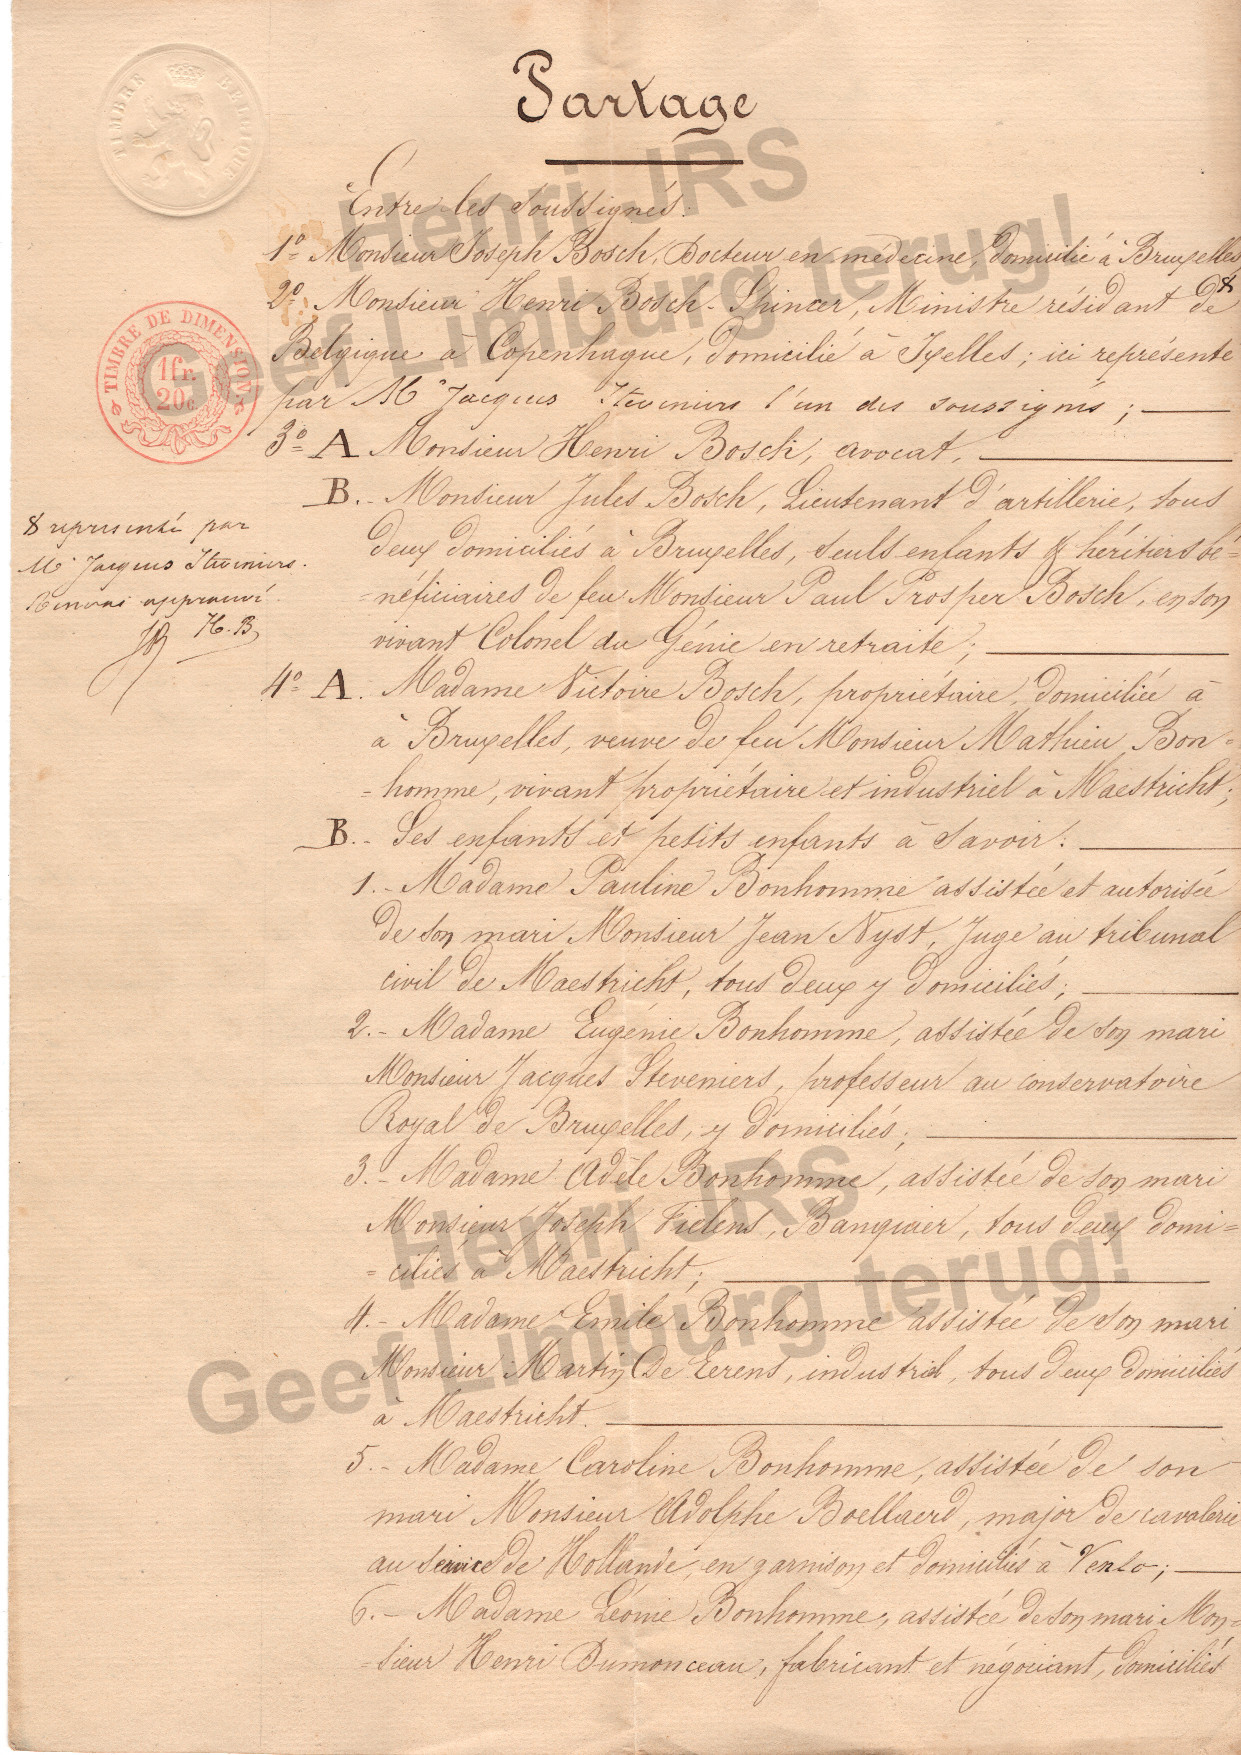 Partage
TIMBRE BELGIQUE
Entre les soussignés:
1º Monsieur Joseph Bosch, Docteur en médecine, domicilié à Bruxelles 8
2º Monsieur Henri Bosch-Spincer, Ministre résidant de
Belgique à Copenhague, domicilié à Ixelles; ici représenté
par Mr Jacques Steveniers l'un des soussignés;
TIMBRE DE DIMENSION
1fr.
20c
3º A Monsieur Henri Bosch, avocat,
B.- Monsieur Jules Bosch, Lieutenant d'artillerie, tous
deux domiciliés à Bruxelles, seuls enfants & héritiers bé=
=néficiaires de feu Monsieur Paul Prosper Bosch, en son
vivant Colonel du Génie en retraite;
8 représenté par
Mr Jacques Steveniers.
Renvoi approuvé
JB H.B
4º A. Madame Victoire Bosch, propriétaire, domiciliée à
à Bruxelles, veuve de feu Monsieur Mathieu Bon=
=homme, vivant propriétaire et industriel à Maestricht;
B.- Ses enfants et petits enfants à savoir:
1.- Madame Pauline Bonhomme assistée et autorisée
de son mari Monsieur Jean Nyst, Juge au tribunal
civil de Maestricht, tous deux y domiciliés;
2.- Madame Eugénie Bonhomme, assistée de son mari
Monsieur Jacques Stéveniers, professeur au conservatoire
Royal de Bruxelles, y domiciliés;
3.- Madame Adèle Bonhomme, assistée de son mari
Monsieur Joseph Fielens, Banquier, tous deux domi=
=ciliés à Maestricht;
4.- Madame Emilé Bonhomme assistée de son mari
Monsieur Martin De Lerens, industriel, tous deux domiciliés
à Maestricht.
5.- Madame Caroline Bonhomme, assistée de son
mari Monsieur Adolphe Boellaerd, major de cavalerie
au service de Hollande, en garnison et domiciliés à Venlo;
6.- Madame Léonie Bonhomme, assistée de son mari Mon=
=sieur Henri Dumonceau, fabricant et négociant, domiciliés
Henri JRS
Geef Limburg terug!
Henri JRS
Geef Limburg terug!